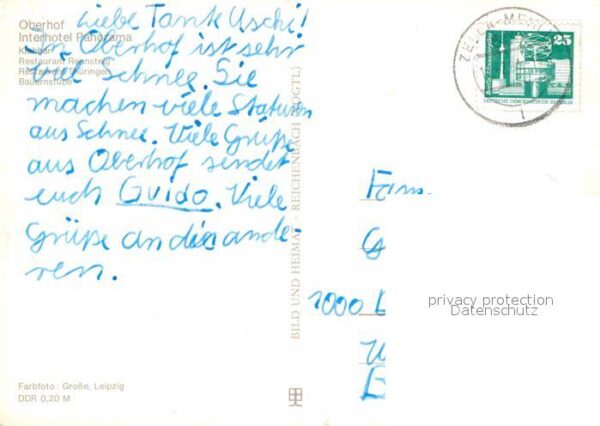 Oberhof
Interhotel Panorama
Restaurant Rennsteig
Restaurant Thüringen
Bauernstube
Liebe Tante Uschi!
In Oberhof ist sehr
viel schnee. Sie
machen viele Statuen
aus Schnee. Viele Grüße
aus Oberhof sendet
euch Guido. Viele
Grüße an die ande-
ren.
BILD UND HEIMAT · REICHENBACH (VOGTL)
Farbfoto: Große, Leipzig
DDR 0,20 M
25
DEUTSCHE DEMOKRATISCHE REPUBLIK
Fam.
1000
privacy protection
Datenschutz